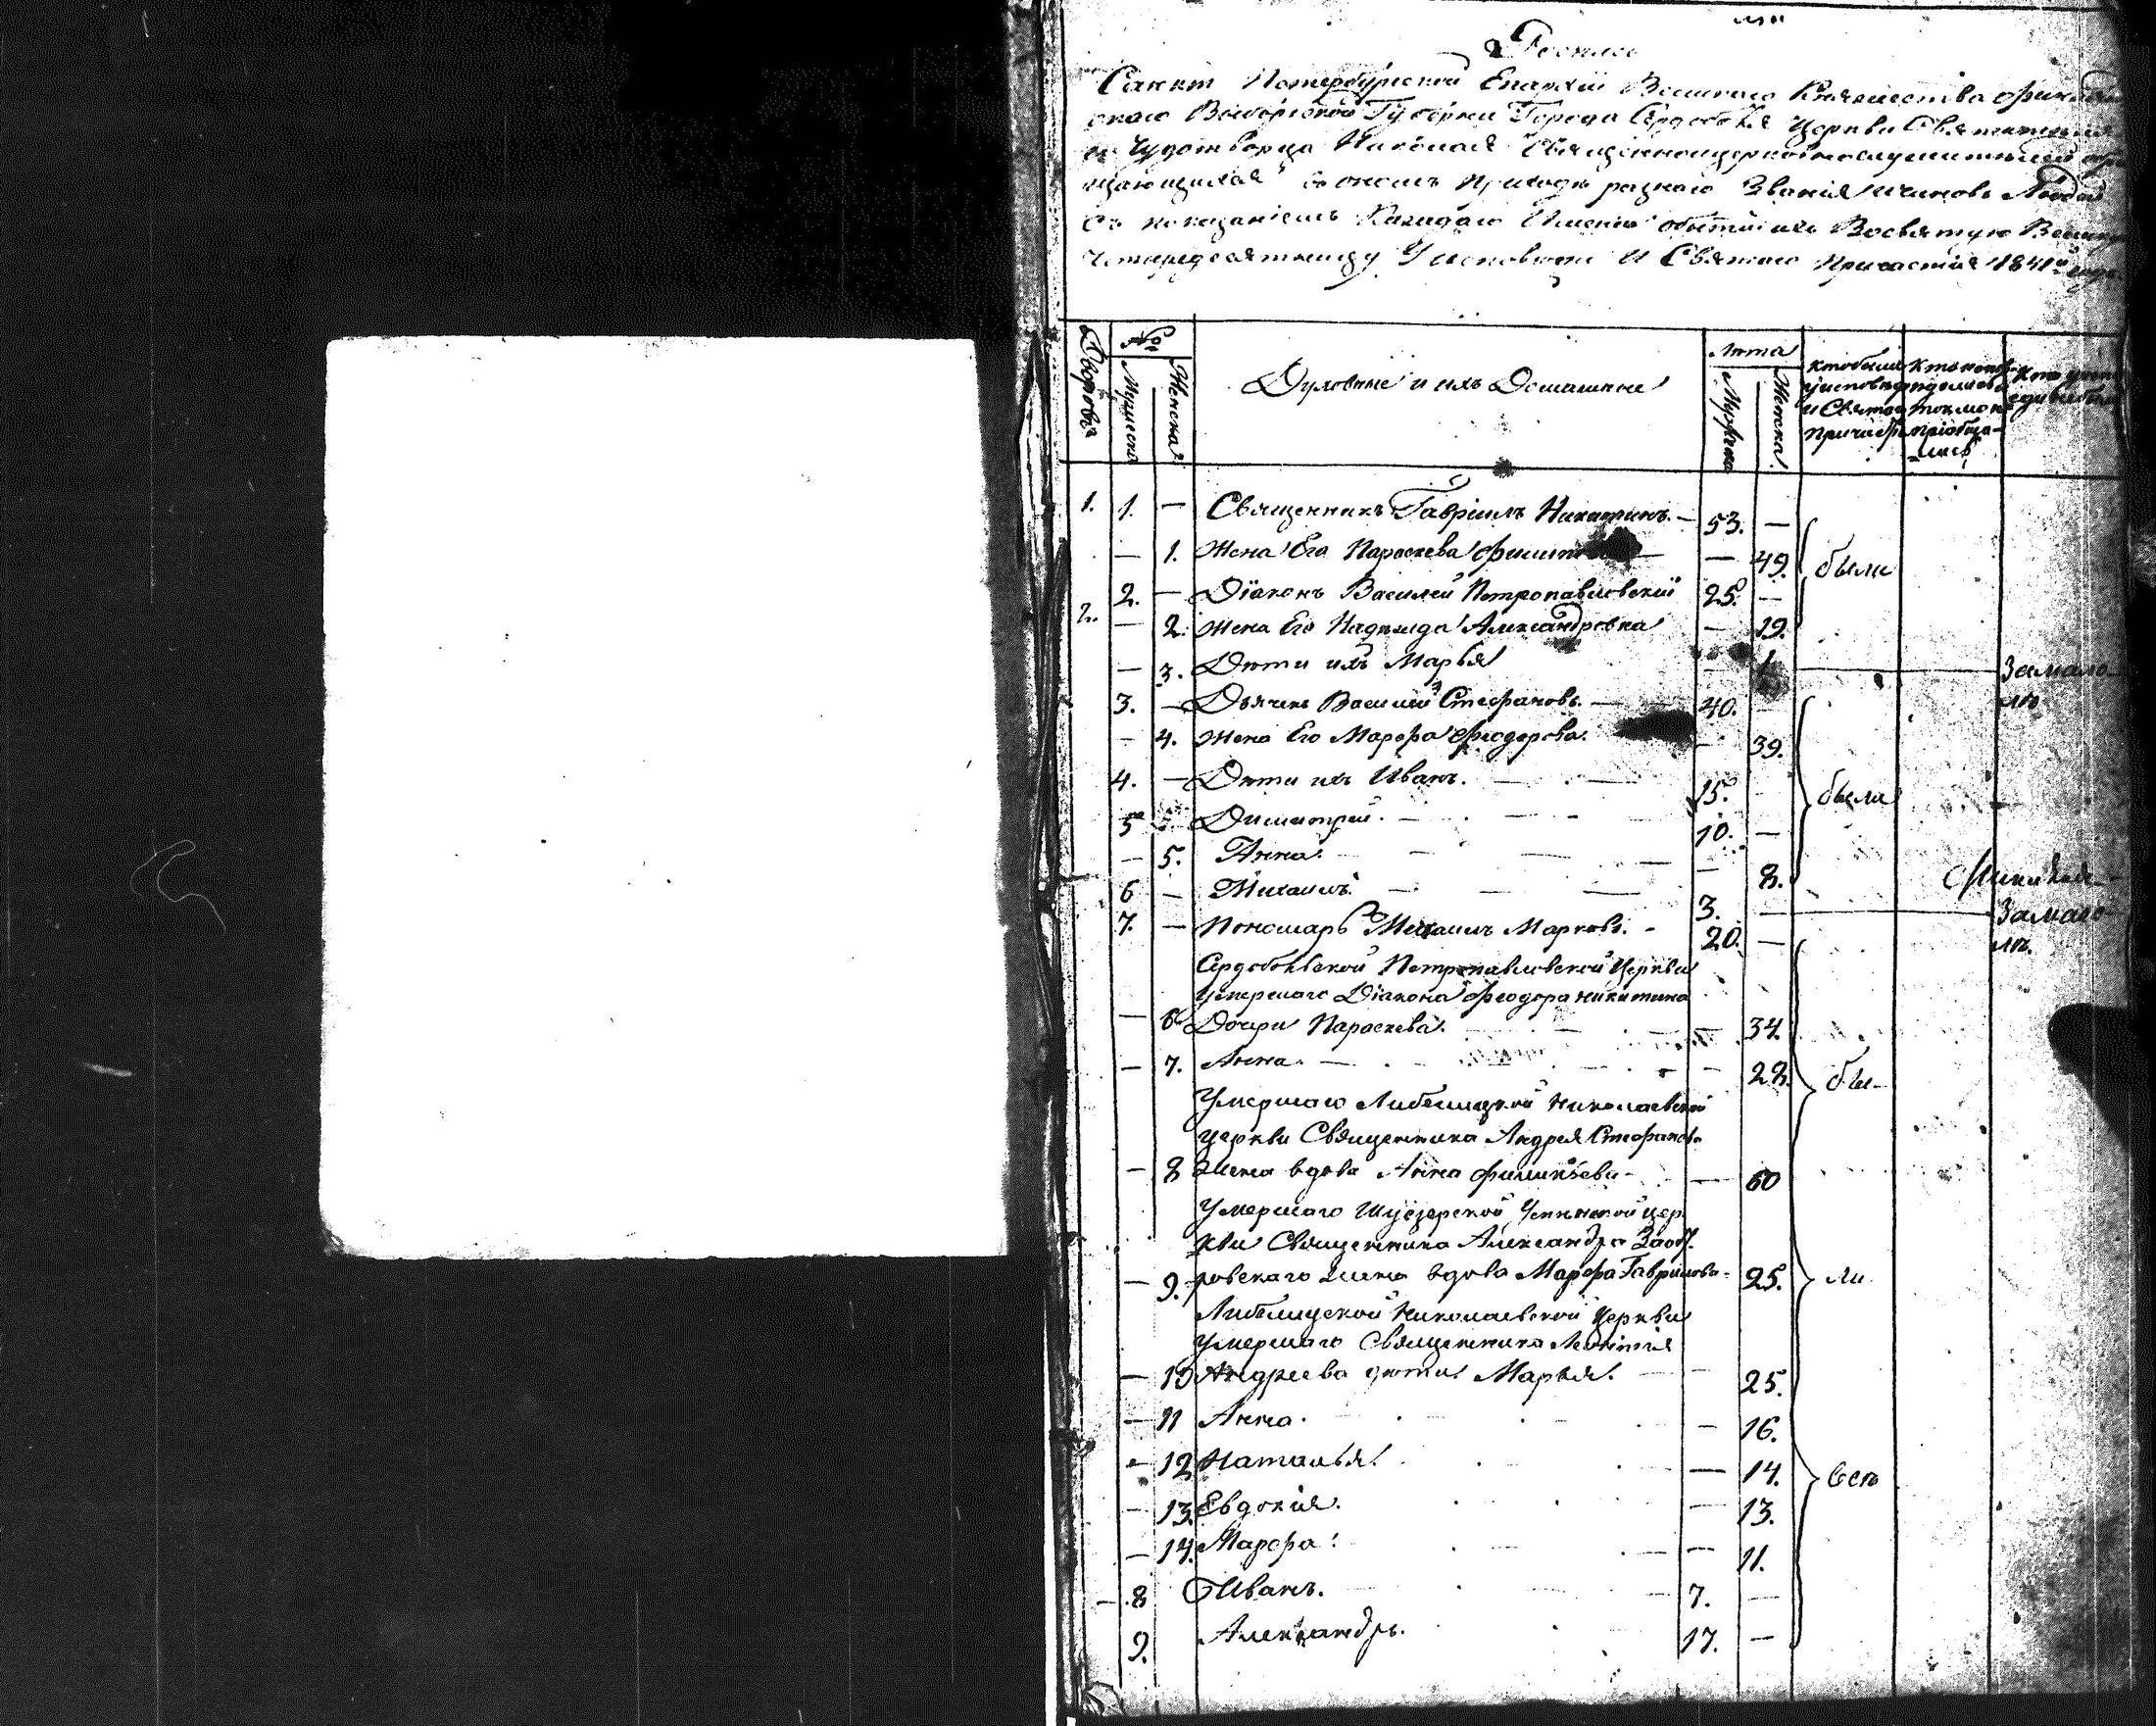 Роспись
Санкт Петербургской Епархіи Великаго Княжества Финлянд
скаго Выборгской Губерніи Города Сердоболя Церкви Святителя
и Чудотворца Николая Священноцерковнослужителей
щающихся въ ономъ приходѣ разнаго Званія и чиновъ Людей
Съ показаніемъ Каждаго Имени бытіи ихъ Восвятую Велик
четыредесятницу У исповѣди И Святаго Причастія 1841го года
№ Лѣта
Дворовыя Мужеска Женска Духовные и ихъ Домашніе Мужеска Женска
кто были у исповѣди и Святаго Причастія
1. 1. — Священникъ Гавріилъ Никитинъ. — 53. —
— 1. Жена Его Параскева — — 49. были
2. — Діаконъ Василей Петропавловский 25. —
2. — 2. Жена Его Надежда Александровна — 19.
— 3. Дѣти ихъ Марья — 1. Замало-
лѣ
3. — Дьячекъ Василий Стефановъ. — 40. —
— 4. Жена Его Марфа Феодорова. — 39.
4. — Дѣти ихъ Иванъ. — — 15. были
5 Димитрей. — — 10. —
— 5. Анна. — — — 8.
6 — Михаилъ. — — — 3. — Замало-
7. — Пономарь Михаилъ Марковъ. - 20. — лѣ.
Сердобольской Петропавловской Церкви
умершаго Діакона Феодора Никитина
— 6 Дочри Параскева. — 34.
— 7. Анна. — — 28. бы-
Умершаго Либелицкой Николаевской
церкви Священника Андрея Стефанова
— 8 Жена вдова Анна — 60
Умершаго Шуезерской цер
кви Священника Александра
9. ровскаго жена вдова Марфа Гаврилова - 25. ли
Либелицкой Николаевской Церкви
Умершаго Священника Леонтія
— 10 Андреева дѣти Марья. — 25.
— 11 Анна. — 16.
- 12 Наталья. — 14. всѣ
— 13. Евдокія. — 13.
— 14. Марфа: — 11.
— 8 Иванъ. — 7. —
9. Александръ. 17. —